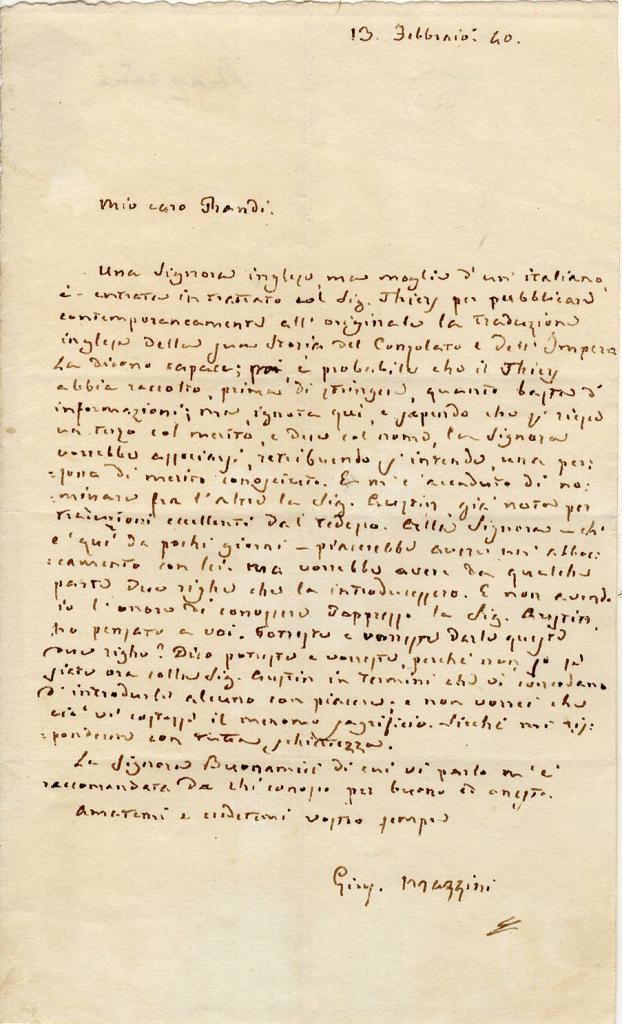 13. Febbraio. 40.
Mio caro Prandi.
Una Signora inglese, ma moglie d'un italiano,
è entrata in trattato col Sig. Thiers per pubblicare
contemporaneamente all'originale la traduzione
inglese della sua Storia del Consolato e dell'Impero.
La dicono capace; poi è probabile che il Thiers
abbia raccolto, prima di stringere, quanto basta d'
informazioni; ma, ignota qui, e sapendo che si riesce
un terzo col merito, e due col nome, la Signora
vorrebbe associarsi, retribuendo s'intende, una per:
:sona di merito conosciuto. E m'è accaduto di no:
:minare fra l'altre la Sig. Austin, già nota per
traduzioni eccellenti dal tedesco. Alla Signora – ch'
è qui da pochi giorni – piacerebbe avere un abboc:
:camento con lei: ma vorrebbe avere da qualche
parte due righe che la introducessero. E non avend'
io l'onore di conoscere dappresso la Sig. Austin,
ho pensato a voi. Potreste e vorreste darle queste
due righe? Dico potreste e vorreste, perché non so se
siate ora colla Sig. Austin in termini che vi concedano
d'introdurle alcuno con piacere: e non vorrei che
ciò vi costasse il menomo sagrificio. Sicché mi ris:
:ponderete con tutta schiettezza.
La Signora Buonamici di cui vi parlo m'è
raccomandata da chi conosco per buono ed onesto.
Amatemi e credetemi vostro sempre
Gius. Mazzini